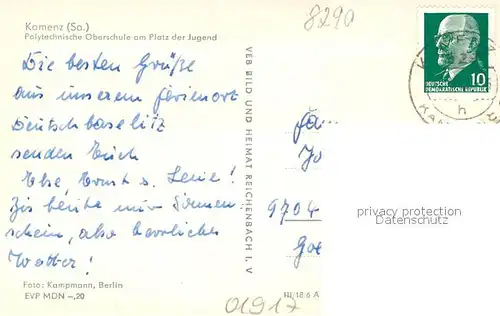 8290
Kamenz (Sa.)
Polytechnische Oberschule am Platz der Jugend
Die besten Grüße
aus unserem Ferienort
Deutschbaselitz
senden Euch
Else, Ernst u. Lenie!
Bis heute nur Sonnen-
schein, also herrliches
Wetter!
Foto: Kampmann, Berlin
EVP MDN –,20
01917
VEB BILD UND HEIMAT REICHENBACH I. V
10
DEUTSCHE
DEMOKRATISCHE REPUBLIK
h
Fa
9704
privacy protection
Datenschutz
III/18/6 A